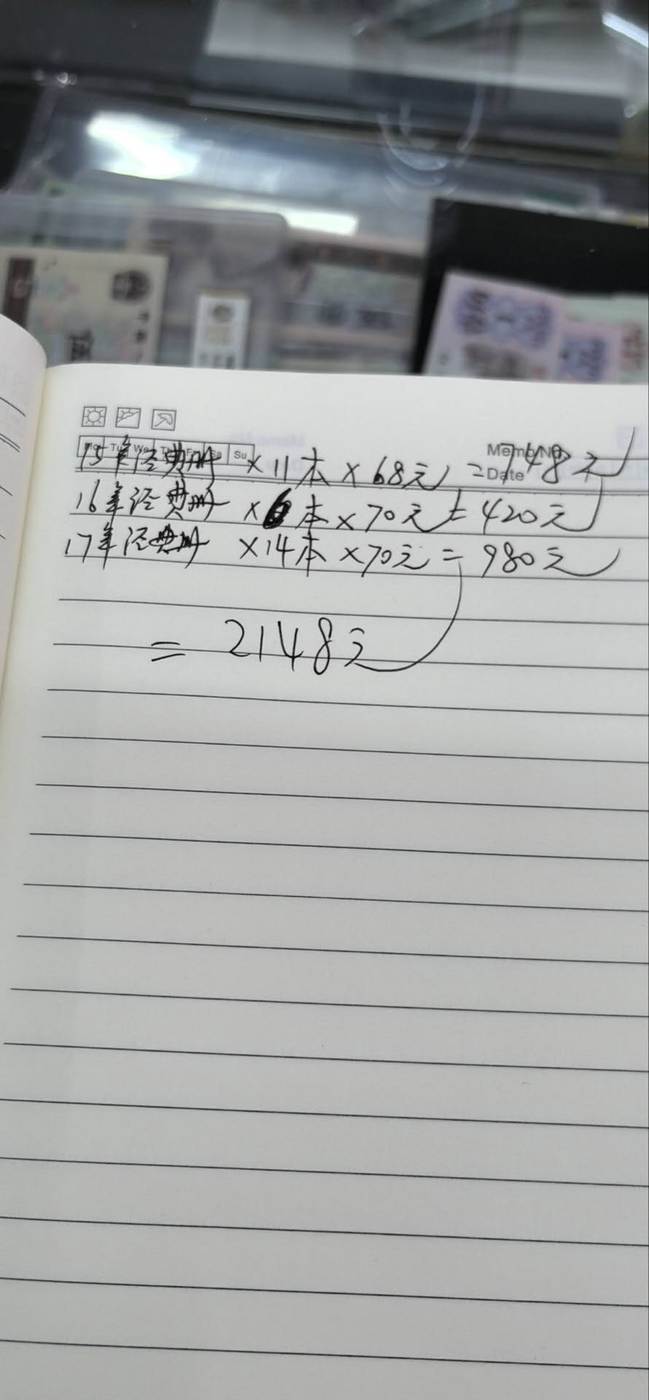 Su
Memo No.
Date
15年经典册 ×11本×68元=748元
16年经典册 ×6本×70元=420元
17年经典册 ×14本×70元=980元
=2148元